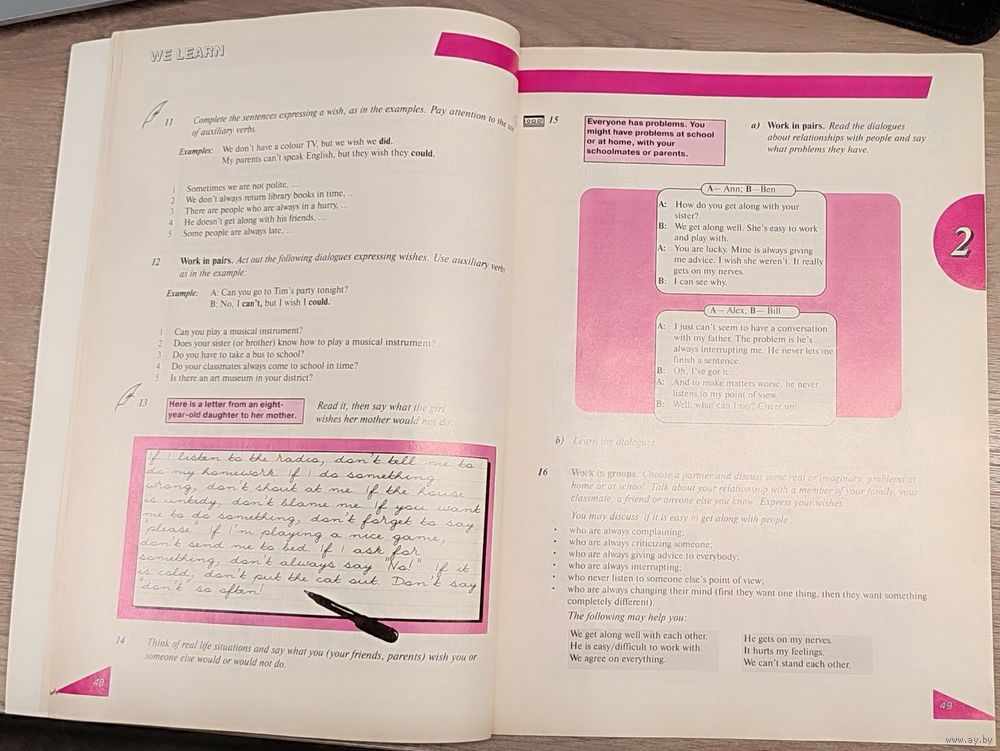 WE LEARN
11 Complete the sentences expressing a wish, as in the examples. Pay attention to the use
of auxiliary verbs.
Examples: We don't have a colour TV, but we wish we did.
My parents can't speak English, but they wish they could.
1 Sometimes we are not polite, ...
2 We don't always return library books in time, ...
3 There are people who are always in a hurry, ...
4 He doesn't get along with his friends, ...
5 Some people are always late, ...
12 Work in pairs. Act out the following dialogues expressing wishes. Use auxiliary verbs
as in the example:
Example: A: Can you go to Tim's party tonight?
B: No, I can't, but I wish I could.
1 Can you play a musical instrument?
2 Does your sister (or brother) know how to play a musical instrument?
3 Do you have to take a bus to school?
4 Do your classmates always come to school in time?
5 Is there an art museum in your district?
13 Here is a letter from an eight-
year-old daughter to her mother.
Read it, then say what the girl
wishes her mother would not do.
If I listen to the radio, don't tell me to
do my homework. If I do something
wrong, don't shout at me. If the house
is untidy, don't blame me. If you want
me to do something, don't forget to say
"please". If I'm playing a nice game,
don't send me to bed. If I ask for
something, don't always say "No!". If it
is cold, don't put the cat out. Don't say
"don't" so often!
14 Think of real life situations and say what you (your friends, parents) wish you or
someone else would or would not do.
48
15 Everyone has problems. You
might have problems at school
or at home, with your
schoolmates or parents.
a) Work in pairs. Read the dialogues
about relationships with people and say
what problems they have.
A— Ann; B— Ben
A: How do you get along with your
sister?
B: We get along well. She's easy to work
and play with.
A: You are lucky. Mine is always giving
me advice. I wish she weren't. It really
gets on my nerves.
B: I can see why.
A— Alex; B— Bill
A: I just can't seem to have a conversation
with my father. The problem is he's
always interrupting me. He never lets me
finish a sentence.
B: Oh, I've got it ...
A: And to make matters worse, he never
listens to my point of view.
B: Well, what can I say? Cheer up!
b) Learn the dialogues.
16 Work in groups. Choose a partner and discuss some real or imaginary problems at
home or at school. Talk about your relationship with a member of your family, your
classmate, a friend or anyone else you know. Express your wishes.
You may discuss if it is easy to get along with people ...
• who are always complaining;
• who are always criticizing someone;
• who are always giving advice to everybody;
• who are always interrupting;
• who never listen to someone else's point of view;
• who are always changing their mind (first they want one thing, then they want something
completely different).
The following may help you:
We get along well with each other.
He is easy/difficult to work with.
We agree on everything.
He gets on my nerves.
It hurts my feelings.
We can't stand each other.
2
49
www.ay.by